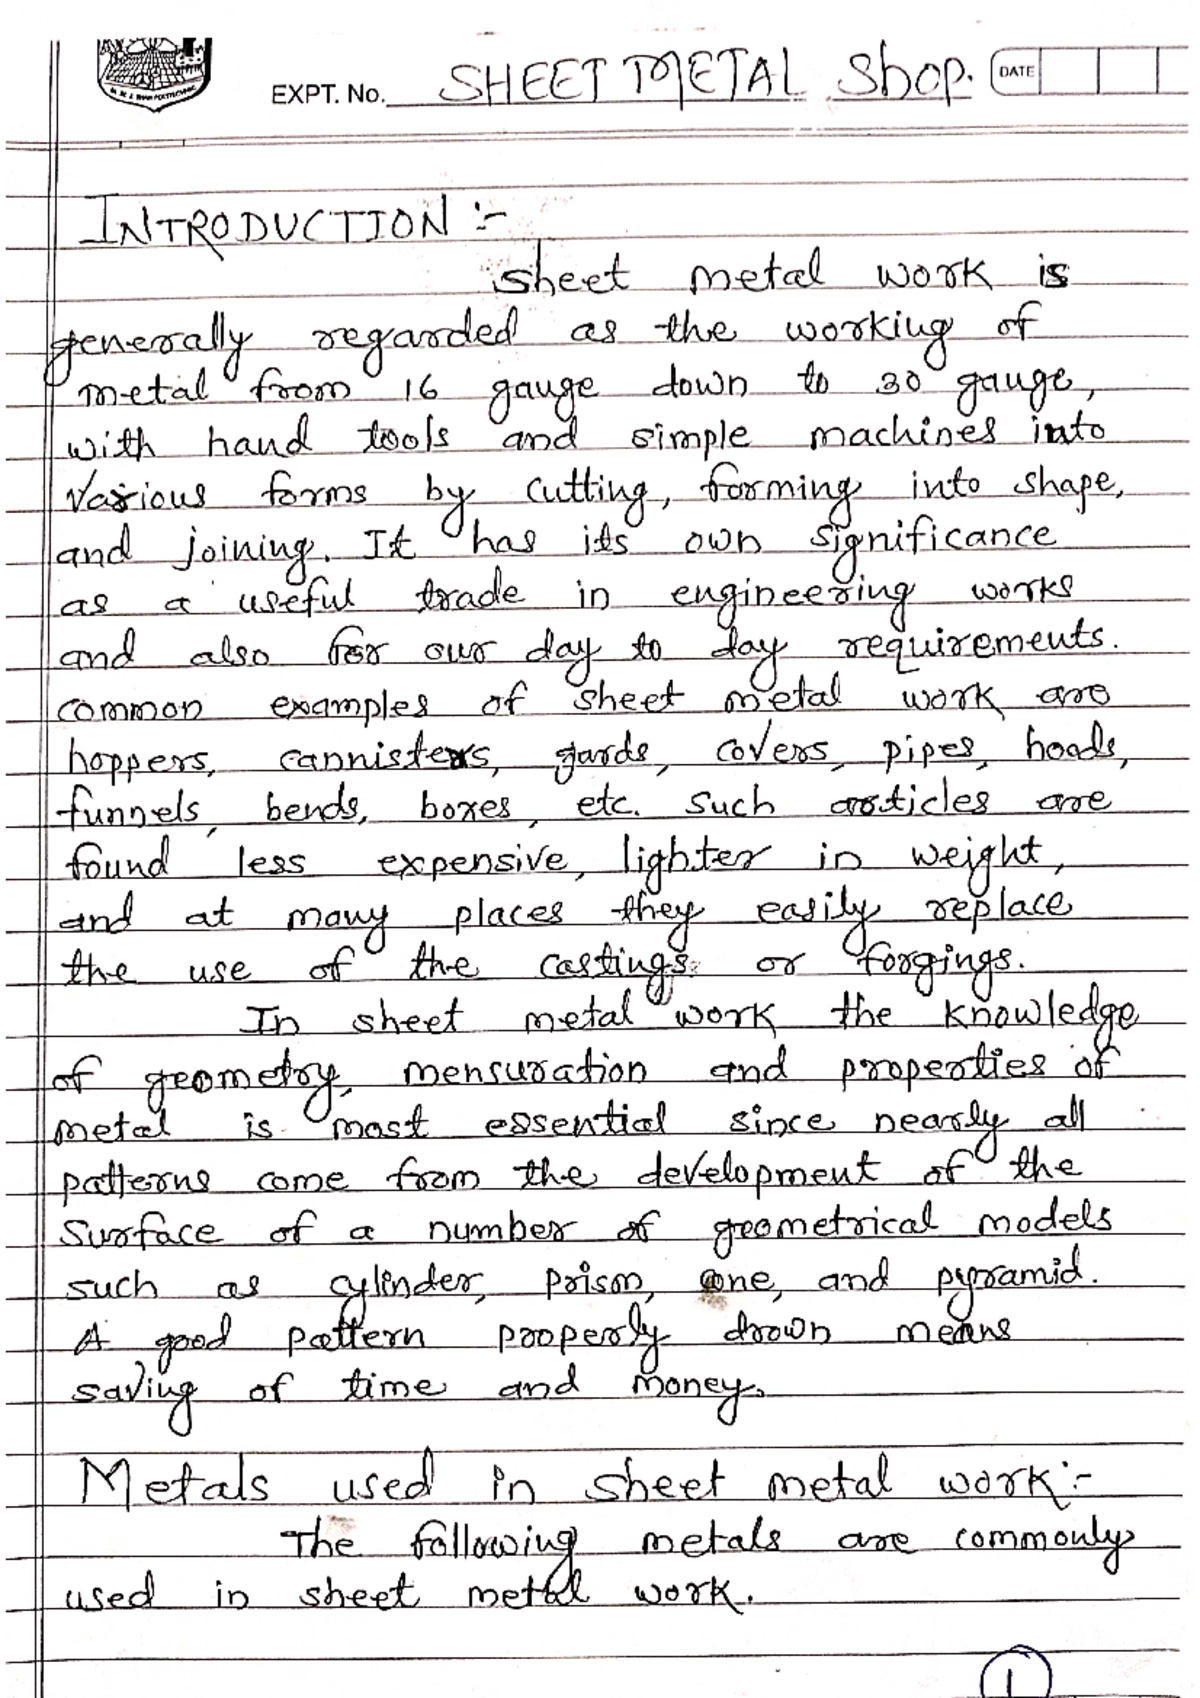 EXPT. No. SHEET METAL Shop. DATE
INTRODUCTION :-
sheet metal work is
generally regarded as the working of
metal from 16 gauge down to 30 gauge,
with hand tools and simple machines into
various forms by cutting, forming into shape,
and joining. It has its own significance
as a useful trade in engineering works
and also for our day to day requirements.
common examples of sheet metal work are
hoppers, cannisters, gards, covers, pipes, hoods,
funnels, bends, boxes, etc. such articles are
found less expensive, lighter in weight,
and at many places they easily replace
the use of the castings or forgings.
In sheet metal work the knowledge
of geometry, mensuration and properties of
metal is most essential since nearly all
patterns come from the development of the
surface of a number of geometrical models
such as cylinder, prism, cone, and pyramid.
A good pattern properly drown means
saving of time and money.
Metals used in sheet metal work:-
The following metals are commonly
used in sheet metal work.
1